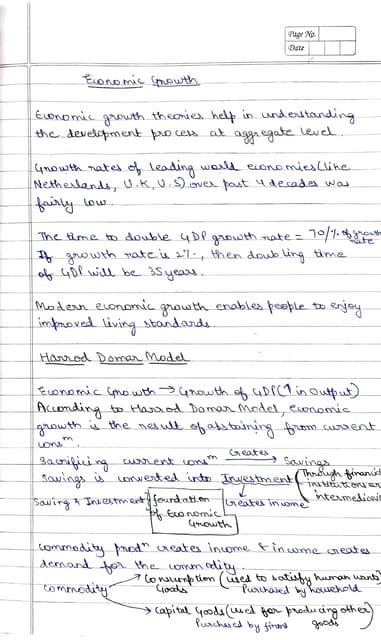 Page No.
Date
Economic Growth
Economic growth theories help in understanding
the development process at aggregate level.
Growth rates of leading world economies (like
Netherlands, U.K, U.S) over past 4 decades was
fairly low.
The time to double GDP growth rate = 70/% of growth rate
If growth rate is 2%, then doubling time
of GDP will be 35 years.
Modern economic growth enables people to enjoy
improved living standards.
Harrod Domar Model
Economic Growth → Growth of GDP (↑ in output)
According to Harrod Domar Model, economic
growth is the result of abstaining from current
consᵐ.
Sacrificing current consᵐ creates → Savings
Savings is converted into Investment (Through financial
institutions or
intermediaries
Saving & Investment } foundation
of Economic
Growth
Creates income
Commodity prodⁿ creates income & income creates
demand for the commodity.
Commodity → Consumption (used to satisfy human wants)
Goods Purchased by household
→ Capital Goods (used for producing other
goods
Purchased by firms